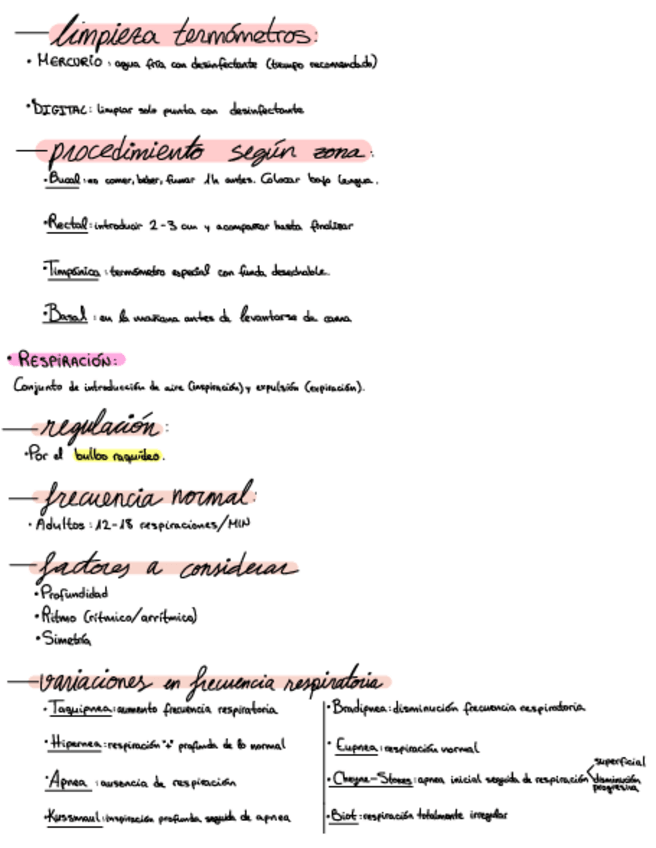 limpieza termómetros:
• MERCURIO: agua fría con desinfectante (tiempo recomendado)
• DIGITAL: limpiar solo punta con desinfectante
procedimiento según zona:
• Bucal: no comer, beber, fumar 1h antes. Colocar bajo lengua.
• Rectal: introducir 2-3 cm y acompañar hasta finalizar
• Timpánica: termómetro especial con funda desechable.
• Basal: en la mañana antes de levantarse de cama
• RESPIRACIÓN:
Conjunto de introducción de aire (inspiración) y expulsión (expiración).
regulación:
• Por el bulbo raquídeo.
frecuencia normal:
• Adultos: 12-18 respiraciones/MIN
factores a considerar
• Profundidad
• Ritmo (rítmica/arrítmica)
• Simetría
variaciones en frecuencia respiratoria
• Taquipnea: aumento frecuencia respiratoria
• Hipernea: respiración "+" profunda de lo normal
• Apnea: ausencia de respiración
• Kussmaul: inspiración profunda seguida de apnea
• Bradipnea: disminución frecuencia respiratoria
• Eupnea: respiración normal
• Cheyne-Stokes: apnea inicial seguida de respiración superficial
disminución
progresiva
• Biot: respiración totalmente irregular